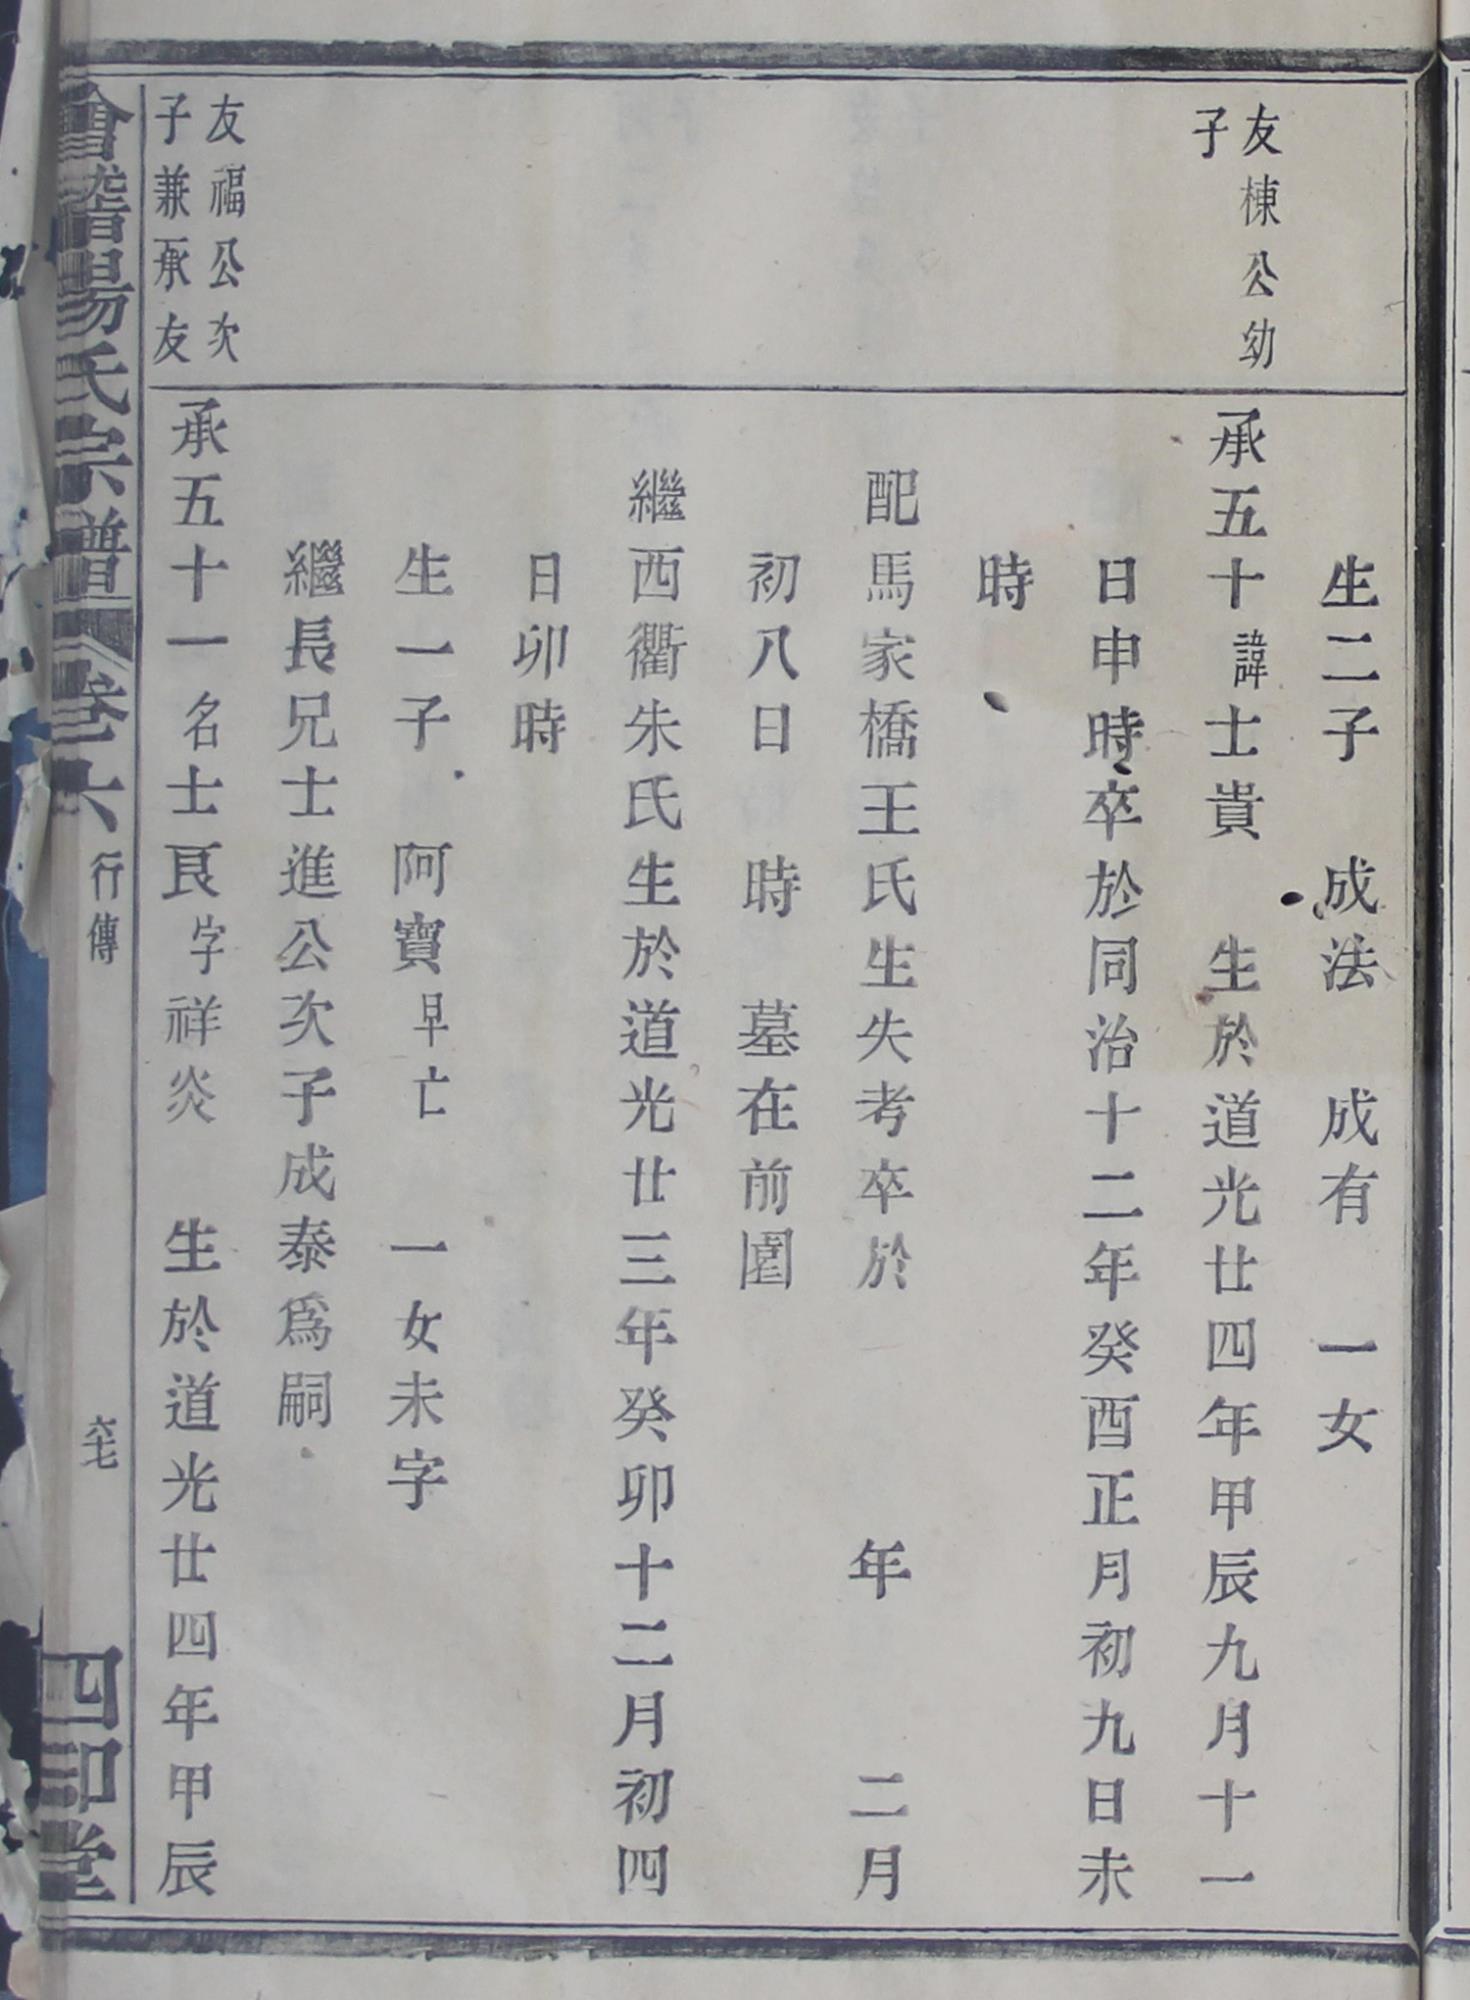 生二子 成法 成有 一女
友棟公幼
子
承五十諱士貴 生於道光廿四年甲辰九月十一
日申時卒於同治十二年癸酉正月初九日未
時
配馬家橋王氏生失考卒於 年 二月
初八日 時 墓在前園
繼西衢朱氏生於道光廿三年癸卯十二月初四
日卯時
生一子 阿寶早亡 一女未字
繼長兄士進公次子成泰爲嗣
友福公次
子兼承友
承五十一名士良字祥炎 生於道光廿四年甲辰
會稽暘氏宗譜 卷六 行傳 六七 四印堂